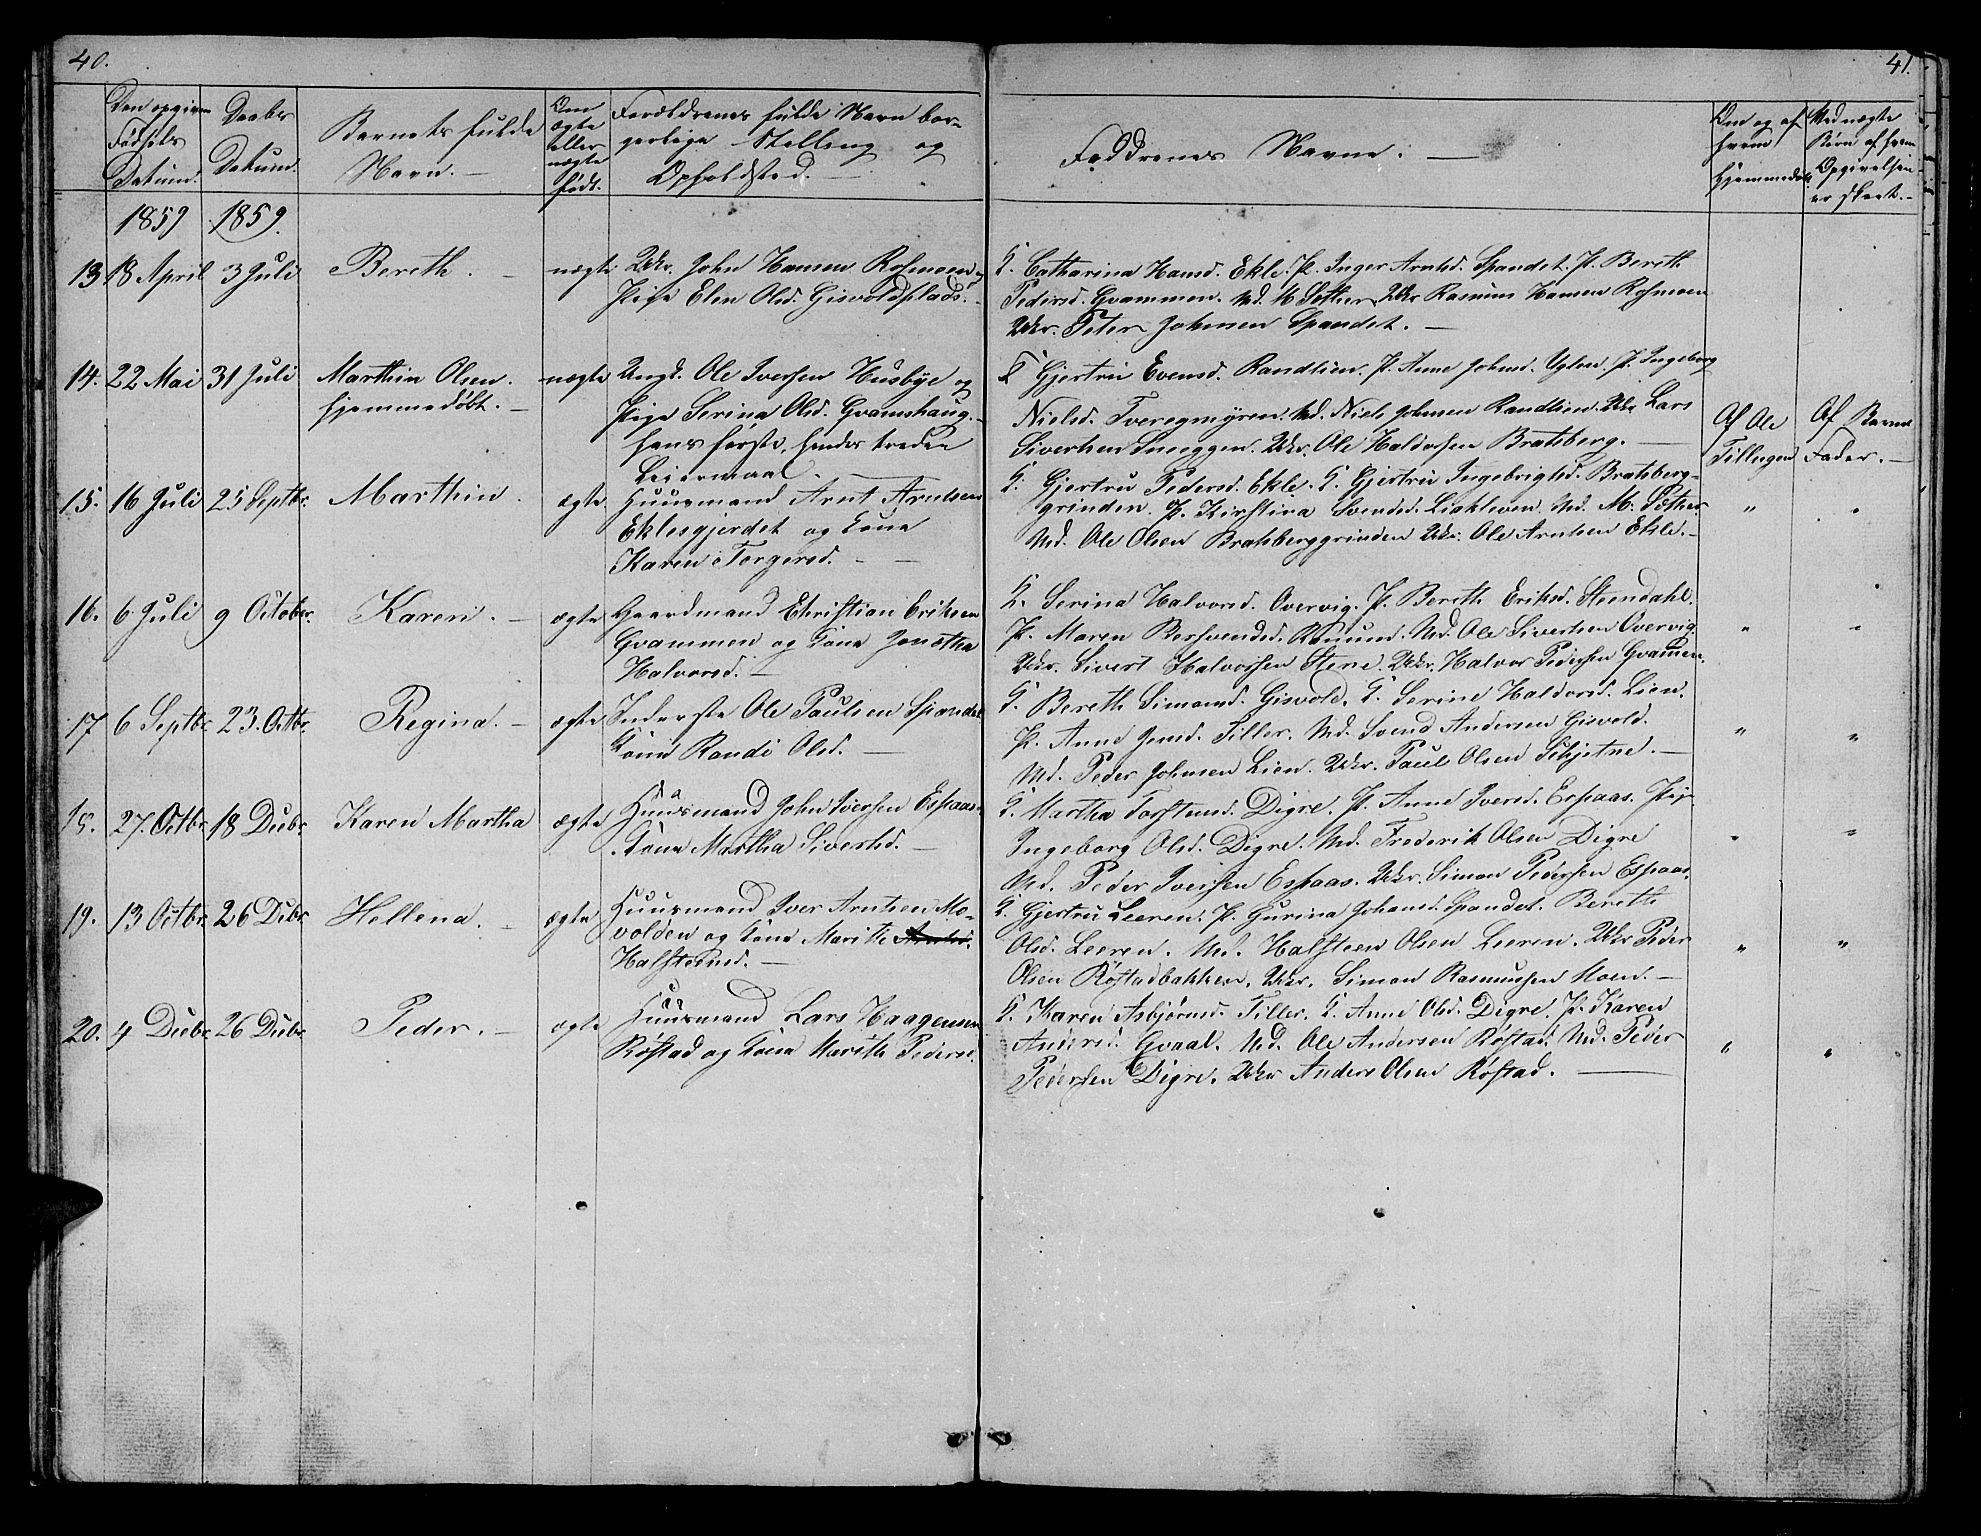 40.
41.
Den opgivne Fødsels Datum.
Daabs Datum.
Barnets fulde Navn. -
Om ægte eller uægte født.
Forældrenes fulde Navn borgerlige Stilling og Opholdsted. -
Faddrenes Navne. -
Om og af hvem Hjemmedøbt
Ved uægte Børn af hvem Opgivelsen er skeet. -
1859 1859.
13 18 April 3 Juli Bereth. - uægte
Ukr. John Hansen Rosmoen
Pige Elen Olsd. Gisvoldplads. -
G. Catharina Hansd. Ekle. P. Inger Arntsd. Spandet. P. Bereth
Pedersd. Gvammen. Md. M Sæther Ukr Rasmus Hansen Rosmoen
Ukr. Peter Johnsen Spandet. -
14. 22 Mai 31 Juli Marthin Olsen. uægte
hjemmedøbt. -
Ungk. Ole Iversen Husbye og
Pige Serina Olsd. Gvamshaug. -
hans første, hendes tredie
Leiermaal -
G Gjertru Evensd. Randlien. P. Anne Johnsd. Uglen. P. Ingeborg
Nielsd. Tveregmyren. Md. Niels Johnsen Randlien. Ukr Lars
Sivertsen Sneeggen. Ukr. Ole Haldorsen Bratsberg. -
Af Ole Tillugen
Af Barnets Fader. -
15. 16 Juli 25 Septbr. Marthin. ægte
Huusmand Arnt Arntsen
Eklesgjerdet og Kone
Karen Torgersd. -
G. Gjertru Pedersd. Ekle. G. Gjertru Ingebrigtsd. Bratsberg-
grinden. P. Kirstina Svendsd. Liakleven. Md. M. Sæther
Md. Ole Olsen Bratsberggrinden Ukr. Ole Arntsen Ekle. -
" "
16. 6 Juli 9 October. Karen. - ægte
Gaardmand Christian Eriksen
Gvammen og Kone Jonetha
Halvorsd. -
G. Serina Halvorsd. Overvig. P. Bereth Eriksd. Steendahl.
P. Maren Bersvendsd. Md. Ole Sivertsen Overvig.
Ukr. Sivert Halvorsen Stene. Ukr. Halvor Pedersen Gvamen.
" "
17 6 Septbr. 23. Octbr. Regina. - ægte
Inderste Ole Paulsen Spandet
Kone Randi Olsd. -
G. Bereth Simonsd. Gisvold. G. Serine Haldorsd. Lien.
P. Anne Jensd. Tiller. Md. Svend Andersen Gisvold.
Md. Peder Johnsen Lien. Ukr. Paul Olsen Skjetne. -
" "
18. 27. Octbr. 18 Decbr. Karen Martha ægte
Huusmand John Iversen Espaas.
Kone Martha Sivertsd. -
G. Martha Torstensd. Digre. P. Anne Iversd. Espaas. Pig.
Ingeborg Olsd. Digre. Md. Frederik Olsen Digre
Md. Peder Iversen Espaas. Ukr. Simon Pedersen Espaas.
" "
19. 13 Octbr. 26 Decbr. Hellena. - ægte
Huusmand Iver Arntsen Mo-
volden og Kone Marith Arntsd.
Halsteensd. -
G. Gjertru Leeren. P. Gurina Johansd. Spandet. Bereth
Olsd. Leeren. Md. Halsteen Olsen Leeren. Ukr Peder
Olsen Røstadbakken. Ukr. Simon Rasmussen Moen. -
" "
20. 4 Decbr. 26 Decbr. Peder. - ægte
Huusmand Lars Haagensen
Røstad og Kone Marith Pedersd.
G. Karen Asbjørnsd. Tiller. G. Anne Olsd. Digre. P. Karen
Andersd Gvaal. Md. Ole Andersen Røstad. Md. Peder
Pedersen Digre. Ukr Anders Olsen Røstad. -
" "